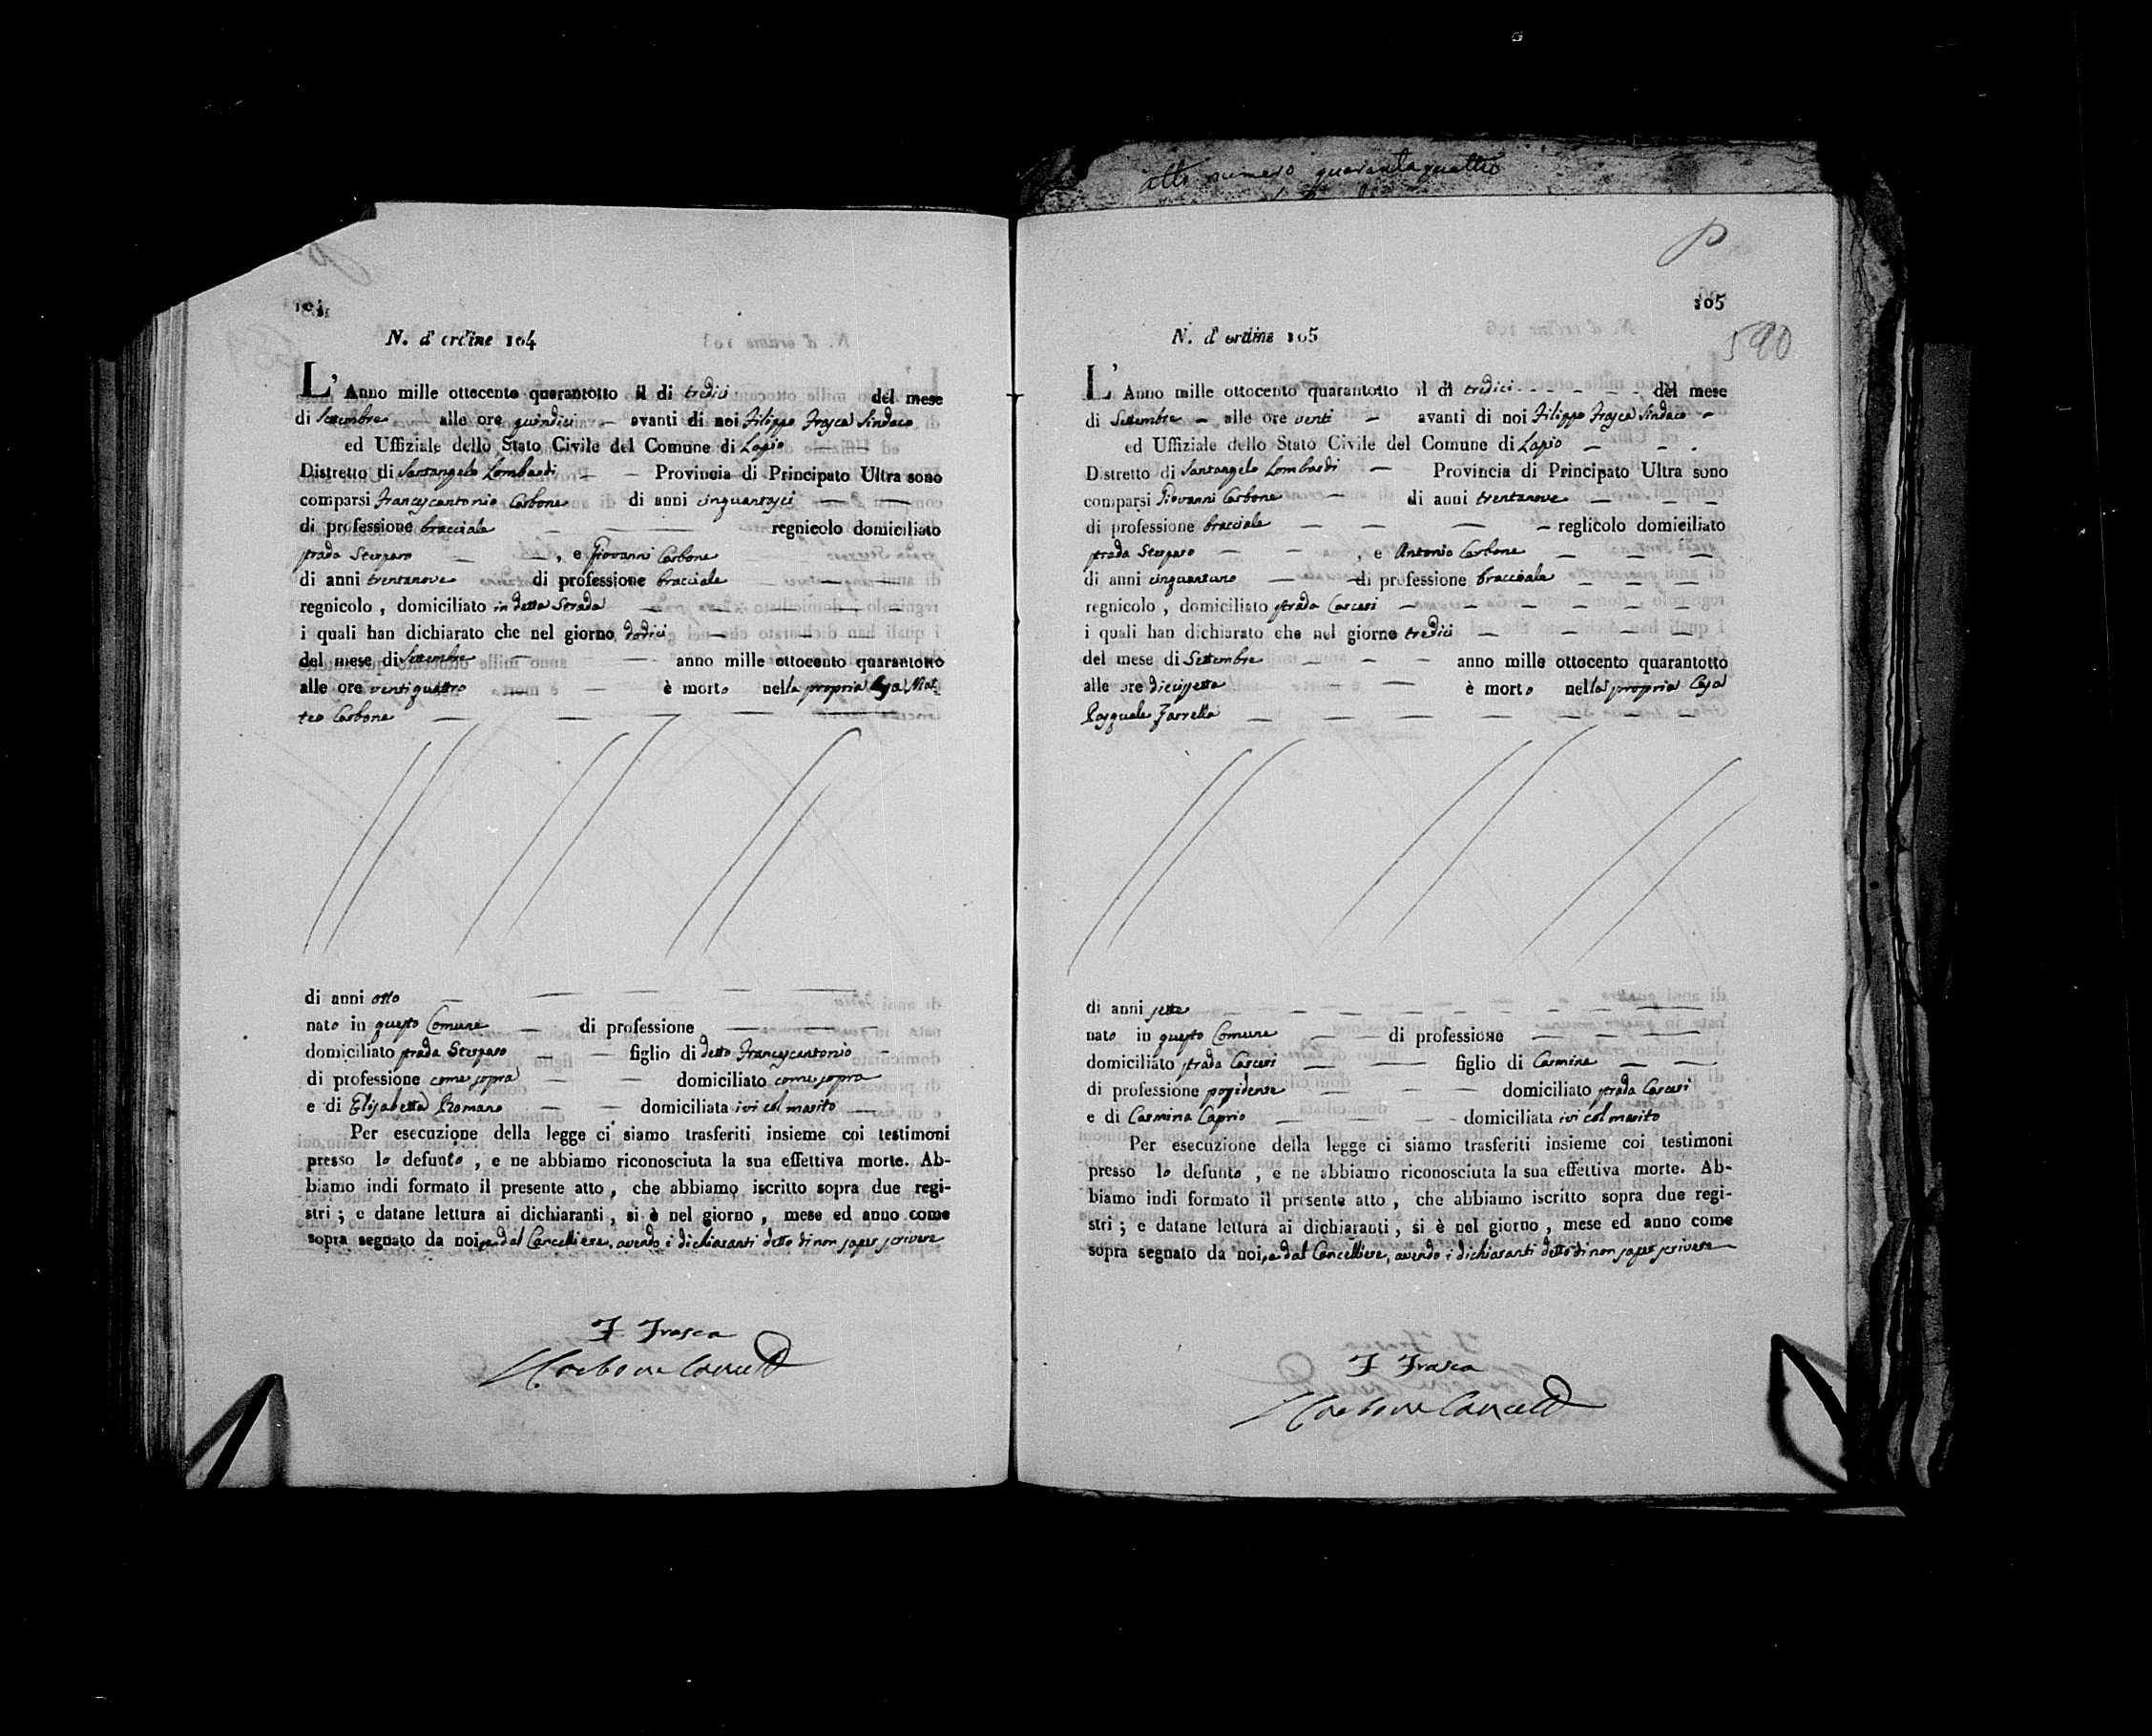 atto numero quarantaquattro
104
N. d'ordine 104
L'Anno mille ottocento quarantotto il di tredici del mese
di Settembre alle ore quindici avanti di noi Filippo Frasca Sindaco
ed Uffiziale dello Stato Civile del Comune di Lapio
Distretto di Santangelo Lombardi Provincia di Principato Ultra sono
comparsi Francescantonio Carbone di anni cinquantasei
di professione bracciale regnicolo domiciliato
strada Sterparo , e Giovanni Carbone
di anni trentanove di professione bracciale
regnicolo , domiciliato in detta Strada
i quali han dichiarato che nel giorno dodici
del mese di Settembre anno mille ottocento quarantotto
alle ore ventiquattro è morto nella propria Casa Mat-
teo Carbone
di anni otto
nato in questo Comune di professione
domiciliato strada Sterparo figlio di detto Francescantonio
di professione come sopra domiciliato come sopra
e di Elisabetta Romano domiciliata ivi col marito
Per esecuzione della legge ci siamo trasferiti insieme coi testimoni
presso lo defunto , e ne abbiamo riconosciuta la sua effettiva morte. Ab-
biamo indi formato il presente atto , che abbiamo iscritto sopra due regi-
stri ; e datane lettura ai dichiaranti , si è nel giorno , mese ed anno come
sopra segnato da noi, e dal Cancelliere, avendo i dichiaranti detto di non saper scrivere
F Frasca
Carbone Cancell
P
105
590
N. d'ordine 105
L'Anno mille ottocento quarantotto il di tredici del mese
di Settembre alle ore venti avanti di noi Filippo Frasca Sindaco
ed Uffiziale dello Stato Civile del Comune di Lapio
Distretto di Santangelo Lombardi Provincia di Principato Ultra sono
comparsi Giovanni Carbone di anni trentanove
di professione bracciale reglicolo domiciliato
strada Sterparo , e Antonio Carbone
di anni cinquantuno di professione bracciale
regnicolo , domiciliato strada Carceri
i quali han dichiarato che nel giorno tredici
del mese di Settembre anno mille ottocento quarantotto
alle ore diecissette è morto nella propria Casa
Pasquale Zarrella
di anni sette
nato in questo Comune di professione
domiciliato strada Carceri figlio di Carmine
di professione possidente domiciliato strada Carceri
e di Carmina Caprio domiciliata ivi col marito
Per esecuzione della legge ci siamo trasferiti insieme coi testimoni
presso lo defunto , e ne abbiamo riconosciuta la sua effettiva morte. Ab-
biamo indi formato il presente atto , che abbiamo iscritto sopra due regi-
stri ; e datane lettura ai dichiaranti , si è nel giorno , mese ed anno come
sopra segnato da noi, e dal Cancelliere, avendo i dichiaranti detto di non saper scrivere
F Frasca
Carbone Cancell